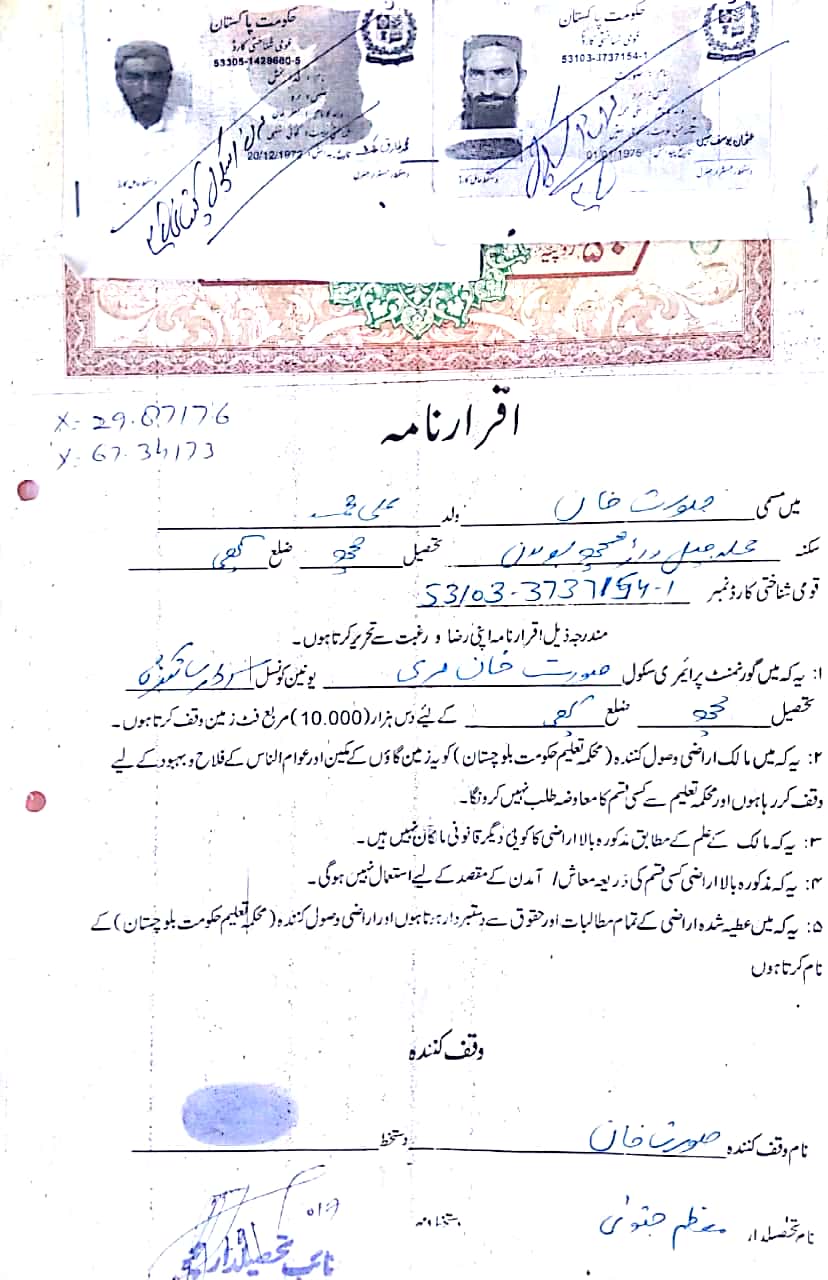 حکومت پاکستان
قومی شناختی کارڈ
53305-1428660-5
20/12/1972
حکومت پاکستان
قومی شناختی کارڈ
53103-3737154-1
01/01/1975
۵۰ روپیہ
X: 29.87176
Y: 67.34173
اقرارنامہ
میں مسمی صورت خان ولد علی محمد
سکنہ محلہ تحصیل ضلع کچھی
قومی شناختی کارڈ نمبر 53103-3737154-1
مندرجہ ذیل اقرارنامہ اپنی رضا و رغبت سے تحریر کرتا ہوں۔
۱: یہ کہ میں گورنمنٹ پرائمری سکول صورت خان مری یونین کونسل
تحصیل ضلع کچھی کے لئے دس ہزار (10.000) مربع فٹ زمین وقف کرتا ہوں۔
۲: یہ کہ میں مالک اراضی وصول کنندہ (محکمہ تعلیم حکومت بلوچستان) کو یہ زمین گاؤں کے مکین اور عوام الناس کے فلاح و بہبود کے لیے
وقف کر رہا ہوں اور محکمہ تعلیم سے کسی قسم کا معاوضہ طلب نہیں کرونگا۔
۳: یہ کہ مالک کے علم کے مطابق مذکورہ بالا اراضی کا کوئی دیگر قانونی مالکان نہیں ہیں۔
۴: یہ کہ مذکورہ بالا اراضی کسی قسم کی ذریعہ معاش / آمدن کے مقصد کے لیے استعمال نہیں ہوگی۔
۵: یہ کہ میں عطیہ شدہ اراضی کے تمام مطالبات اور حقوق سے دستبردار ہوتا ہوں اور اراضی وصول کنندہ (محکمہ تعلیم حکومت بلوچستان) کے
نام کرتا ہوں
وقف کنندہ
نام وقف کنندہ صورت خان دستخط
نام تحصیلدار معظم جتوئی دستخط و مہر
نائب تحصیلدار